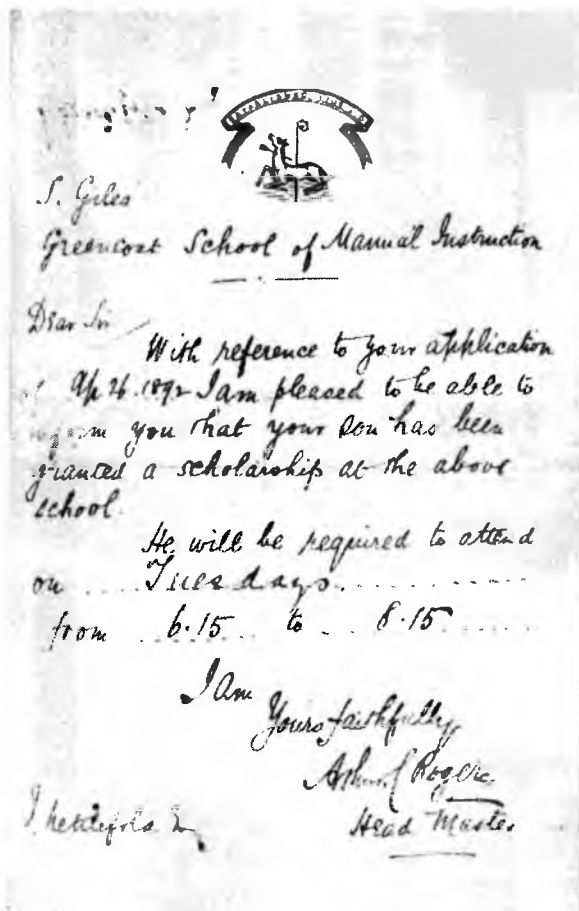 S. Giles
Greencoat School of Manual Instruction
Dear Sir
With reference to your application
of Ap 26. 1892 I am pleased to be able to
inform you that your son has been
granted a scholarship at the above
school.
He will be required to attend
on Tuesdays
from 6.15 to 8.15
I am
Yours faithfully,
Rogers
Head Master